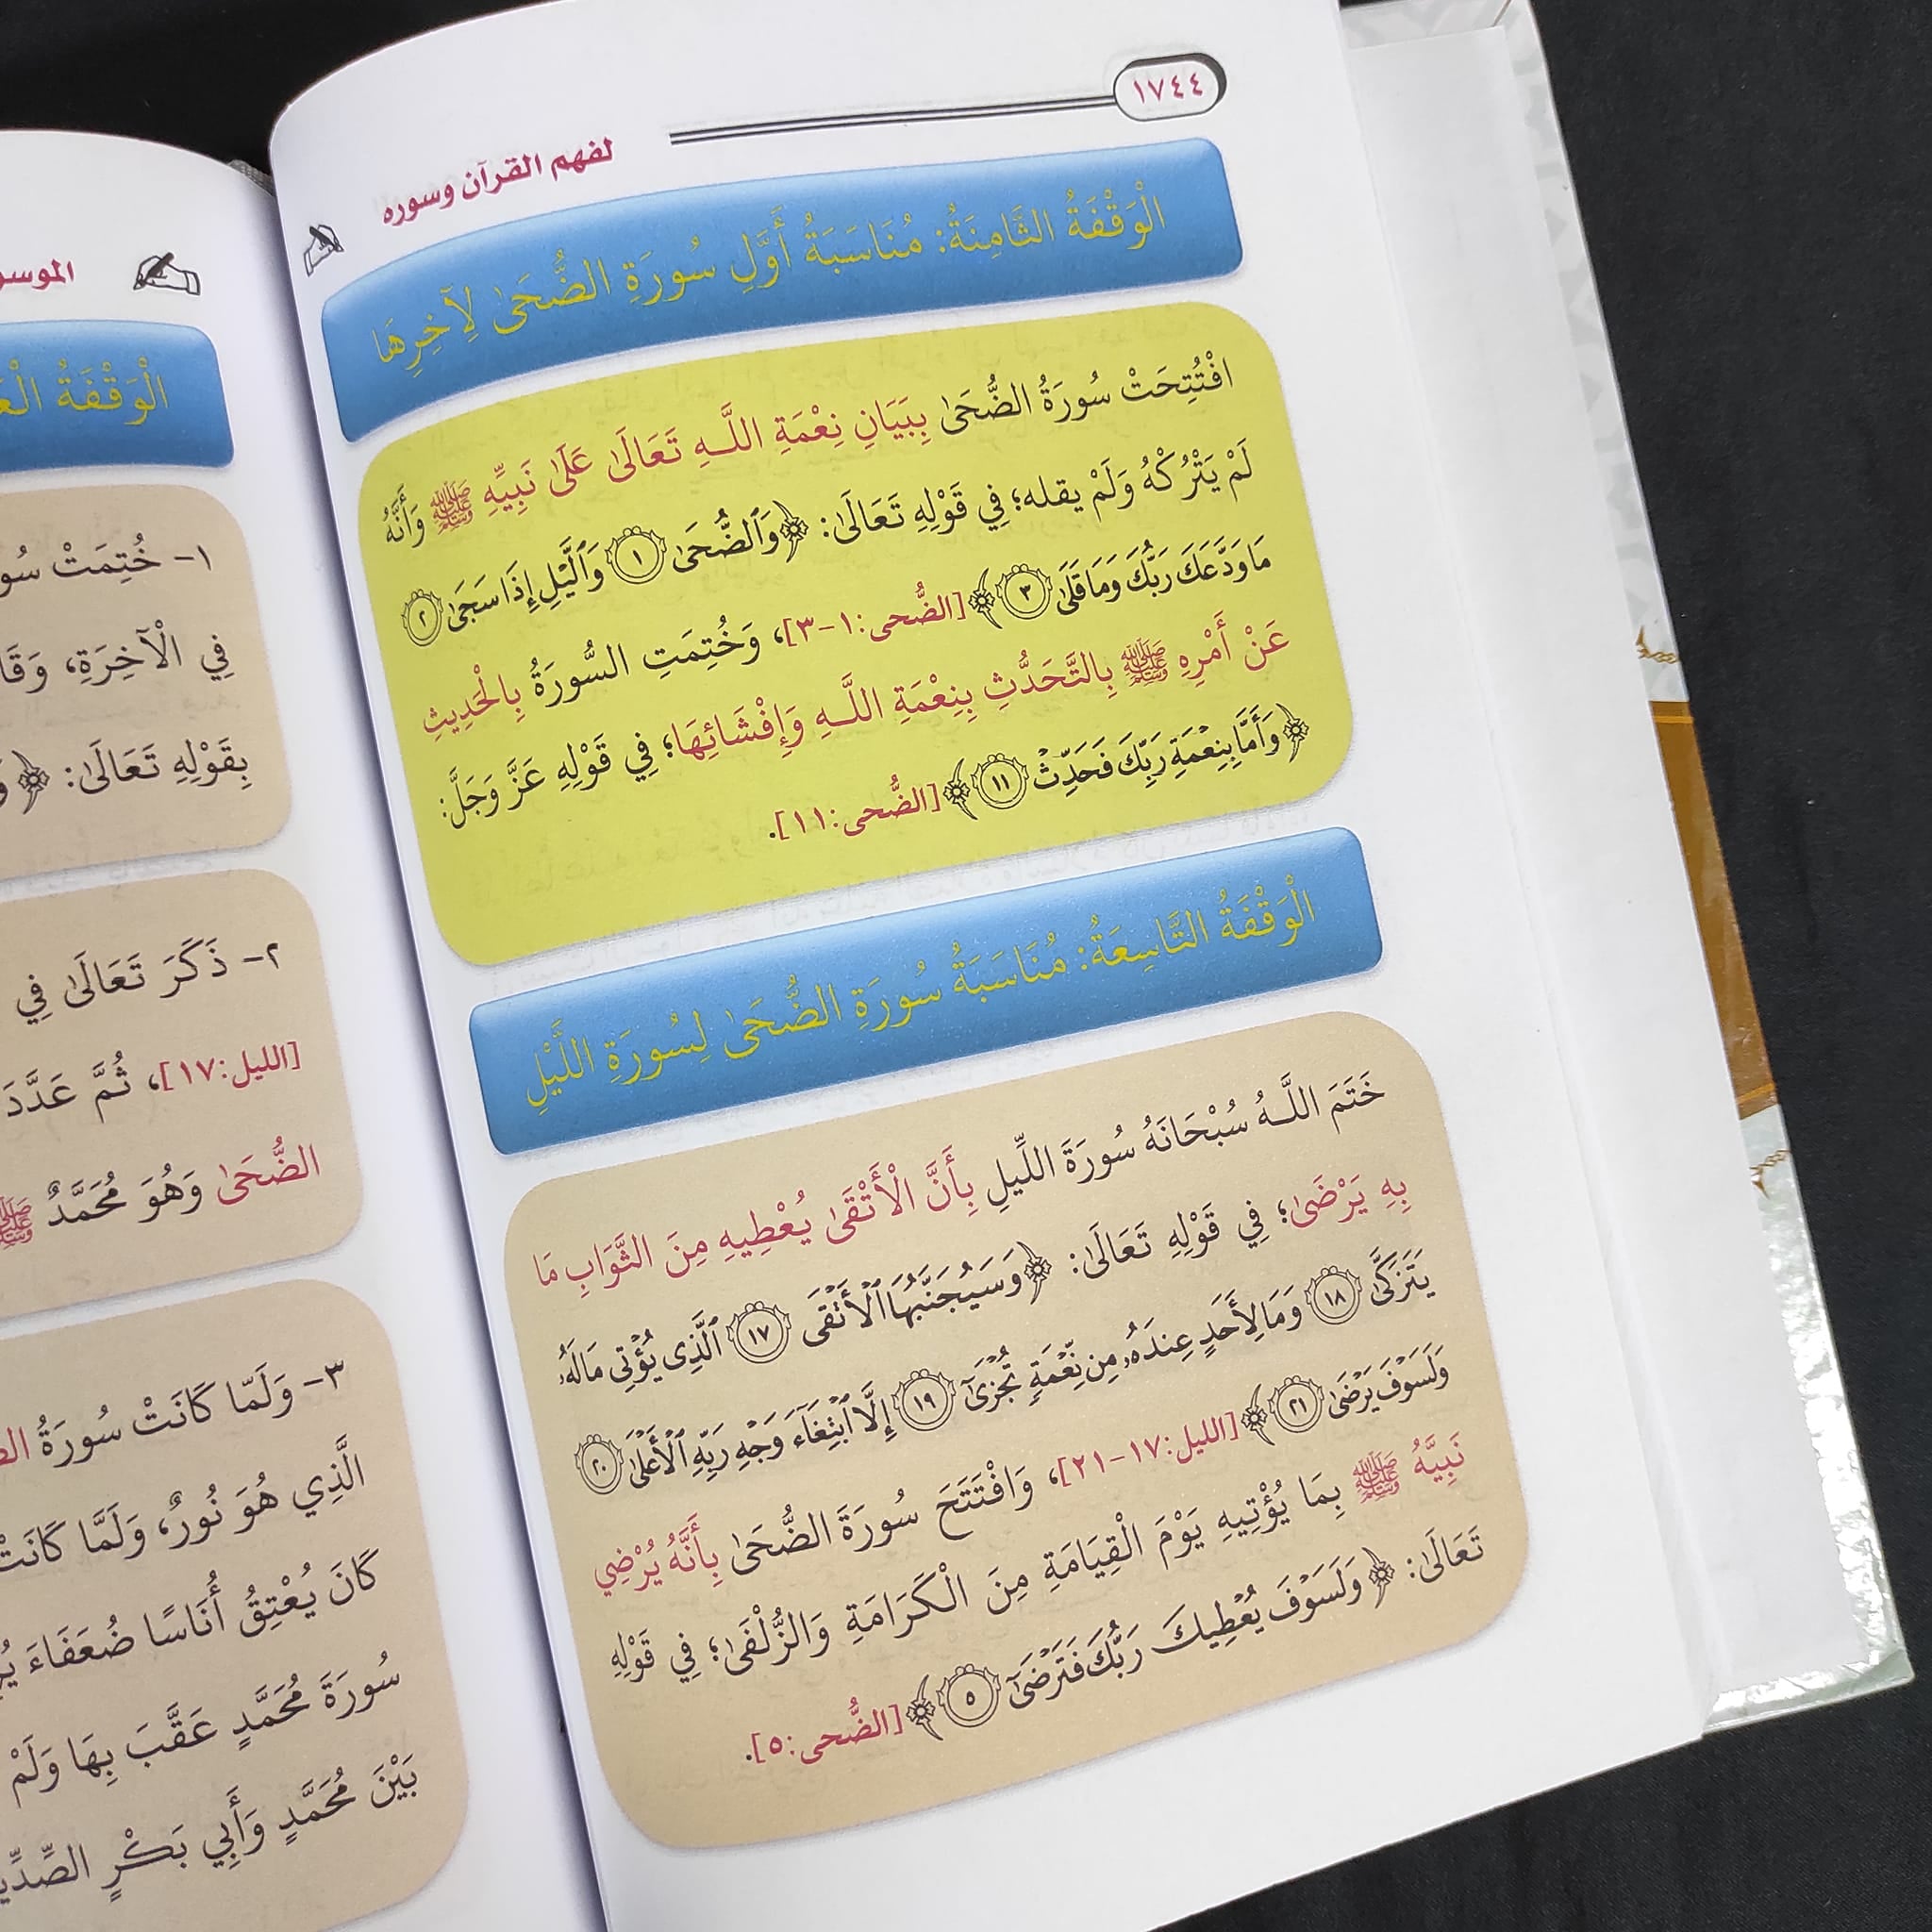 ١٧٤٤
لفهم القرآن وسوره
الْوَقْفَةُ الثَّامِنَةُ: مُنَاسَبَةُ أَوَّلِ سُورَةِ الضُّحَىٰ لِآخِرِهَا
افْتُتِحَتْ سُورَةُ الضُّحَىٰ بِبَيَانِ نِعْمَةِ اللَّـهِ تَعَالَىٰ عَلَىٰ نَبِيِّهِ ﷺ وَأَنَّهُ
لَمْ يَتْرُكْهُ وَلَمْ يقله؛ فِي قَوْلِهِ تَعَالَىٰ: ﴿وَٱلضُّحَىٰ ١ وَٱلَّيْلِ إِذَا سَجَىٰ ٢
مَا وَدَّعَكَ رَبُّكَ وَمَا قَلَىٰ ٣﴾ [الضُّحى:١-٣]، وَخُتِمَتِ السُّورَةُ بِالْحَدِيثِ
عَنْ أَمْرِهِ ﷺ بِالتَّحَدُّثِ بِنِعْمَةِ اللَّـهِ وَإِفْشَائِهَا؛ فِي قَوْلِهِ عَزَّ وَجَلَّ:
﴿وَأَمَّا بِنِعْمَةِ رَبِّكَ فَحَدِّثْ ١١﴾ [الضُّحى:١١].
الْوَقْفَةُ التَّاسِعَةُ: مُنَاسَبَةُ سُورَةِ الضُّحَىٰ لِسُورَةِ اللَّيْلِ
خَتَمَ اللَّـهُ سُبْحَانَهُ سُورَةَ اللَّيلِ بِأَنَّ الْأَتْقَىٰ يُعْطِيهِ مِنَ الثَّوَابِ مَا
بِهِ يَرْضَىٰ؛ فِي قَوْلِهِ تَعَالَىٰ: ﴿وَسَيُجَنَّبُهَا ٱلْأَتْقَى ١٧ ٱلَّذِى يُؤْتِى مَالَهُۥ
يَتَزَكَّىٰ ١٨ وَمَا لِأَحَدٍ عِندَهُۥ مِن نِّعْمَةٍ تُجْزَىٰٓ ١٩ إِلَّا ٱبْتِغَآءَ وَجْهِ رَبِّهِ ٱلْأَعْلَىٰ ٢٠
وَلَسَوْفَ يَرْضَىٰ ٢١﴾ [الليل:١٧-٢١]، وَافْتَتَحَ سُورَةَ الضُّحَىٰ بِأَنَّهُ يُرْضِي
نَبِيَّهُ ﷺ بِمَا يُؤْتِيهِ يَوْمَ الْقِيَامَةِ مِنَ الْكَرَامَةِ وَالزُّلْفَىٰ؛ فِي قَوْلِهِ
تَعَالَىٰ: ﴿وَلَسَوْفَ يُعْطِيكَ رَبُّكَ فَتَرْضَىٰٓ ٥﴾ [الضُّحى:٥].
الْوَقْفَةُ
١- خُتِمَتْ
فِي الْآخِرَةِ،
بِقَوْلِهِ تَعَالَىٰ: ﴿
٢- ذَكَرَ تَعَالَىٰ فِي
[الليل:١٧]، ثُمَّ عَدَّدَ
الضُّحَىٰ وَهُوَ مُحَمَّدٌ ﷺ
٣- وَلَمّا كَانَتْ سُورَةُ
الَّذِي هُوَ نُورٌ، وَلَمَّا كَانَتْ
كَانَ يُعْتِقُ أُنَاسًا ضُعَفَاءَ
سُورَةَ مُحَمَّدٍ عَقَّبَ بِهَا وَلَمْ
بَيْنَ مُحَمَّدٍ وَأَبِي بَكْرٍ